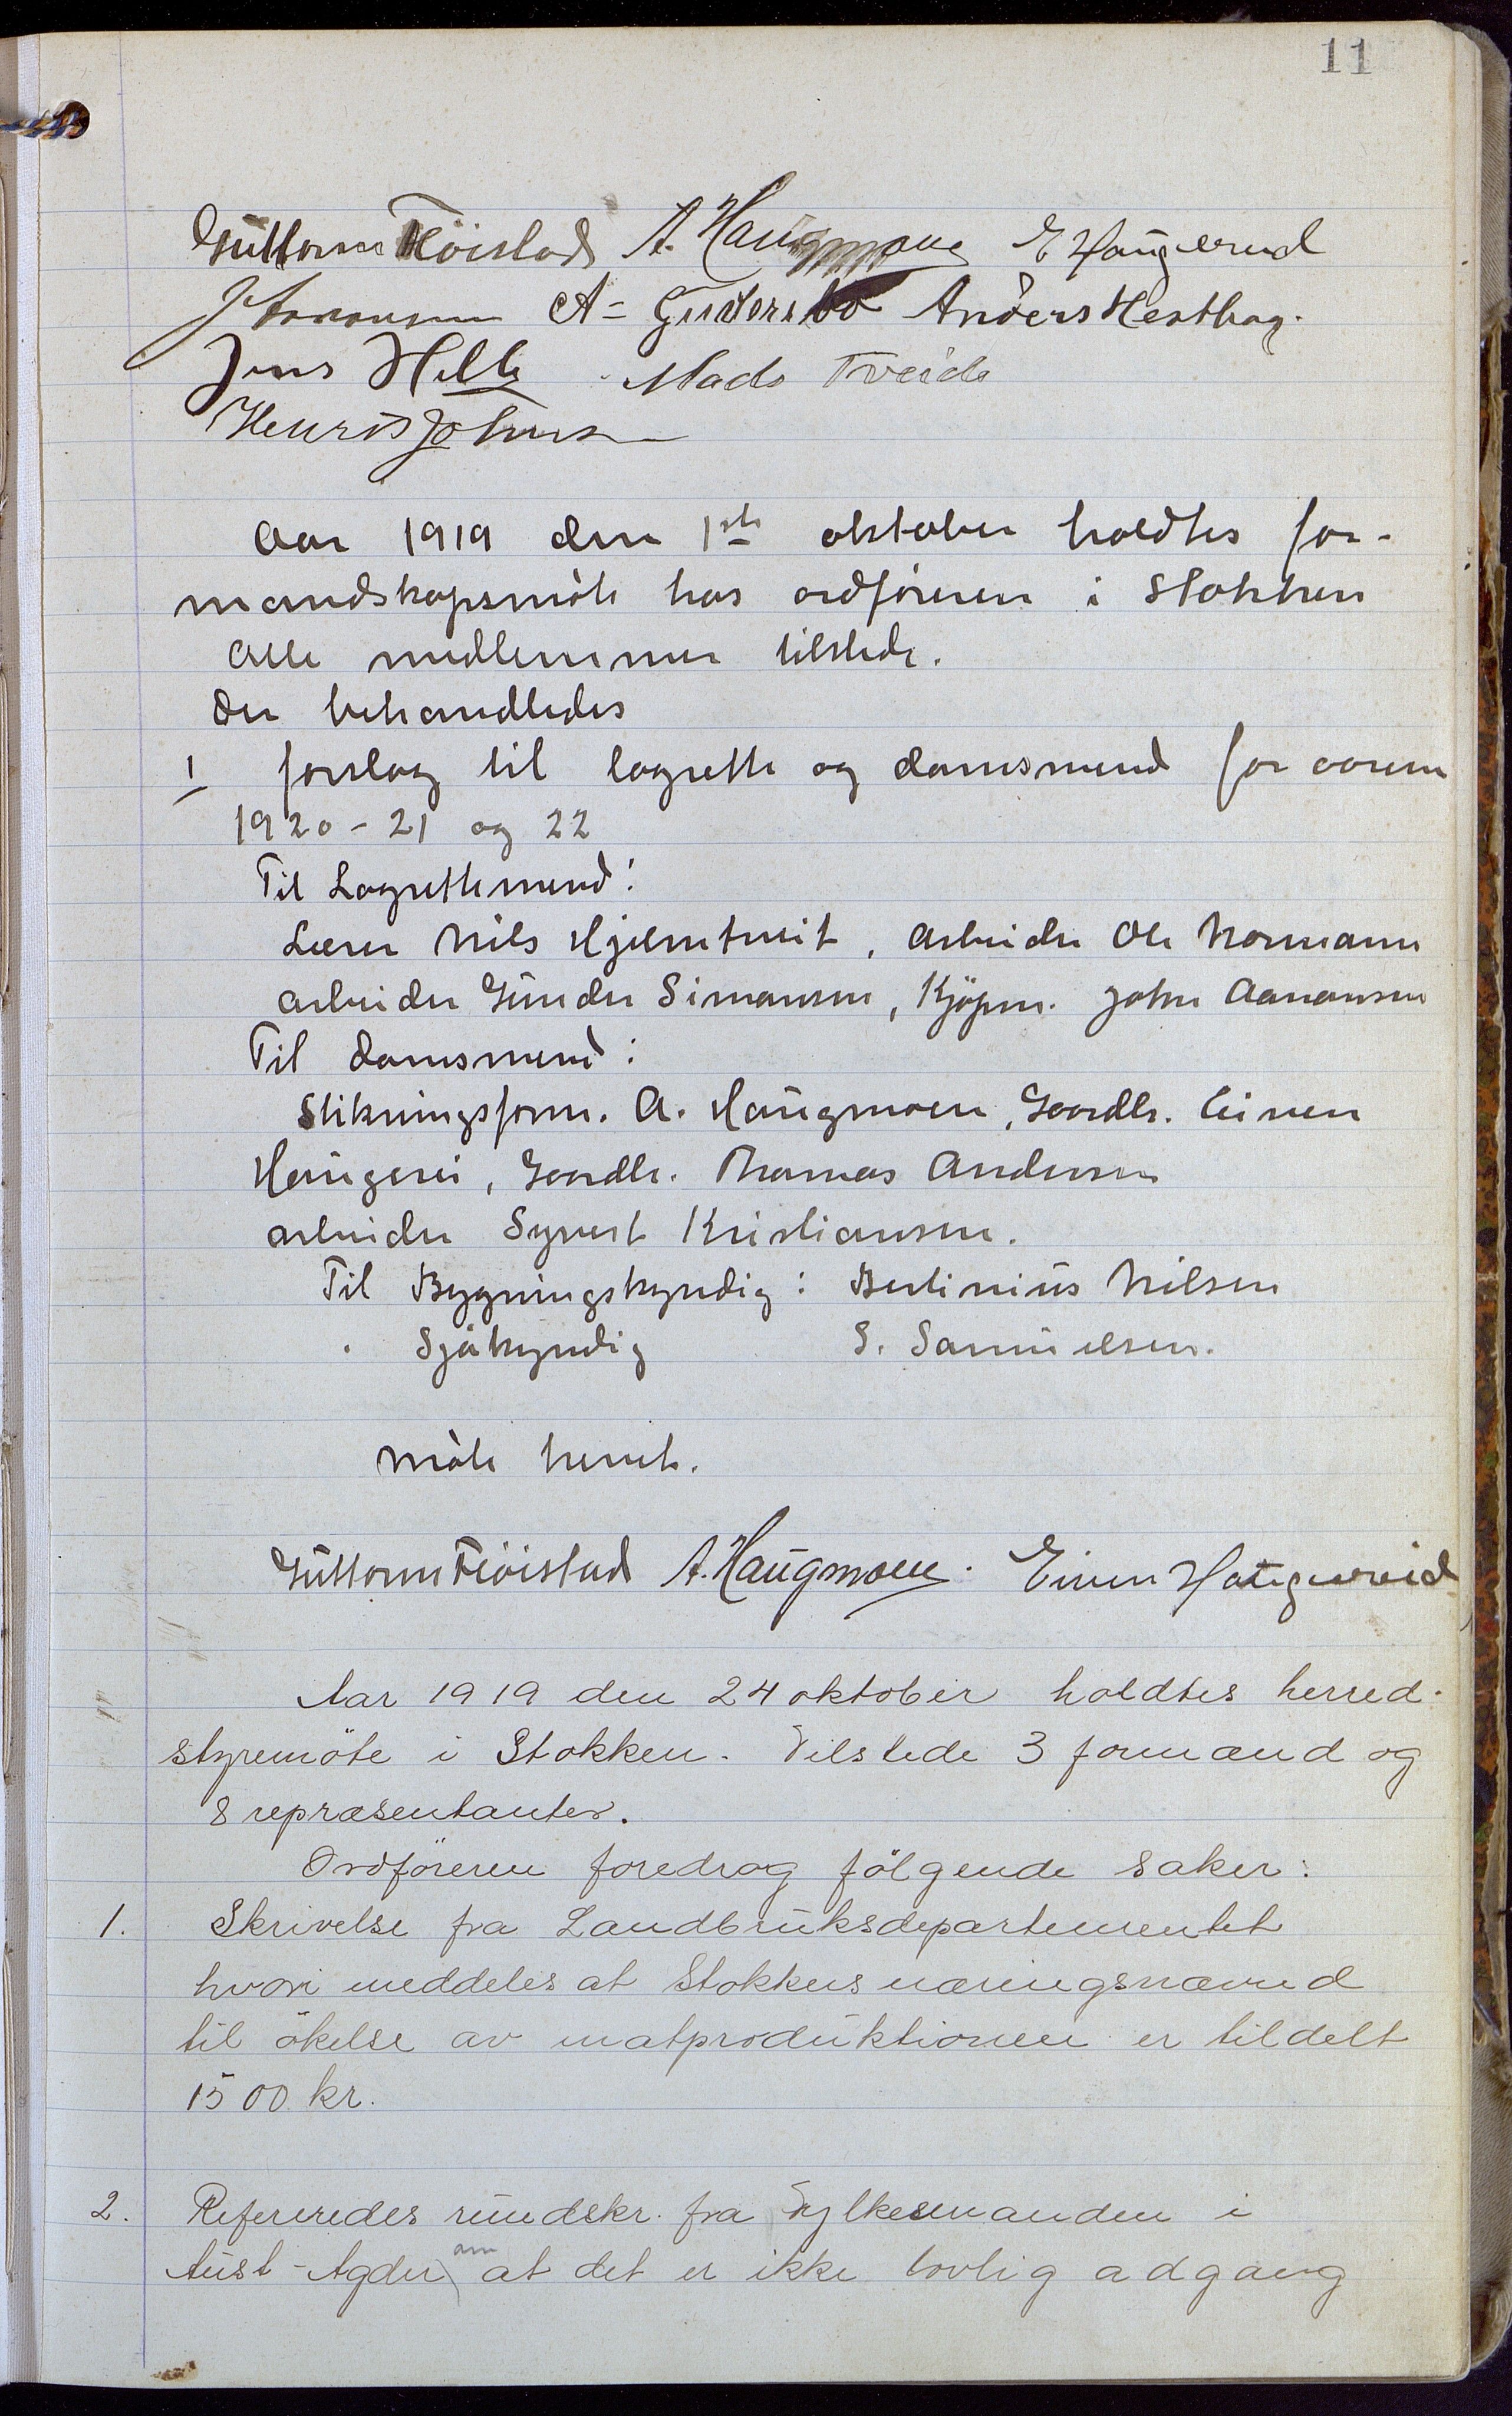 11
Guttorm Fløistad A. Haugmoen E Haugereid
J Aanonsen A. Gudersbo Anders Hesthag.
Jens Helle Mads Tveide
Henrik Johnsen
Aar 1919 den 1ste oktober holdtes for-
mandskapsmöte hos ordföreren i Stokken
Alle medlemmer tilstede.
Der behandledes
1 forslag til lagrette og domsmend for aarene
1920-21 og 22
Til Lagrettemend:
Lærer Nils Hjelmtveit, arbeider Ole Normann
arbeider Gunder Simonsen, Kjöpm. John Aanonsen
Til Domsmend:
Stikningsform. A. Haugmoen, Gaardbr. Einer
Haugerei, Gaardbr. Thomas Andersen
arbeider Syvert Kristiansen.
Til Bygningskyndig: Bertinius Nilsen
" Sjökyndig S. Samuelsen.
Möte hevet.
Guttorm Flöistad A. Haugmoen. Einer Haugereid
Aar 1919 den 24 oktober holdtes herred-
styremöte i Stokken. Tilstede 3 formænd og
8 repræsentanter.
Ordföreren foredrog fölgende saker:
1. Skrivelse fra Landbruksdepartementet
hvori meddeles at Stokkens næringsnævnd
til ökelse av matproduktionen er tildelt
1500 kr.
2. Refereredes rundskr. fra Fylkesmanden i
Aust-Agder om at det er ikke lovlig adgang